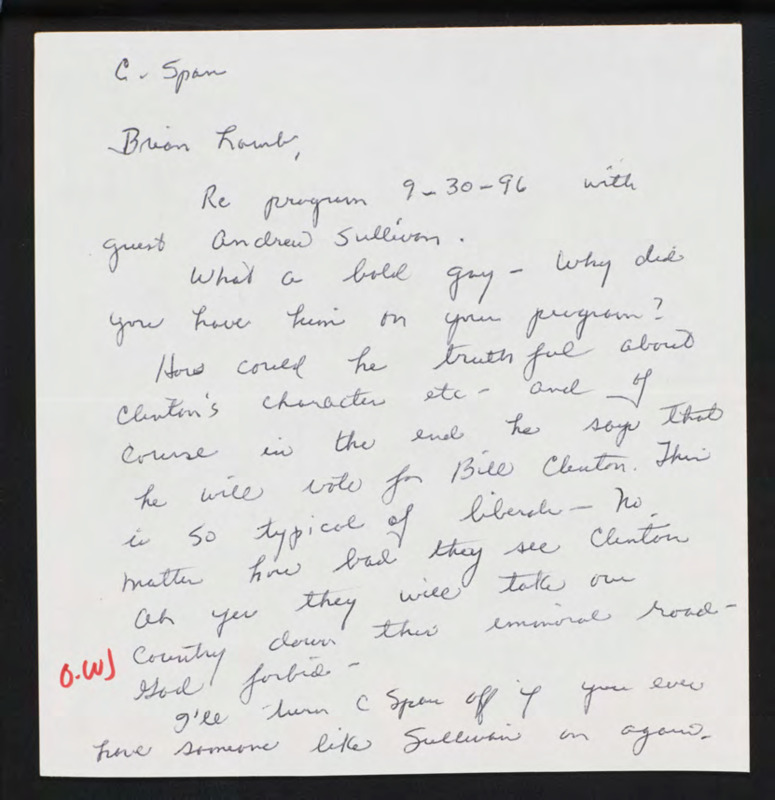 C. Span
Brian Lamb,
Re program 9-30-96 with
guest Andrew Sullivan.
What a bold gay - Why did
you have him on your program?
How could he truthful about
Clinton's character etc - and of
course in the end he says that
he will vote for Bill Clinton. This
is so typical of liberals - No
matter how bad they see Clinton
Oh yes they will take our
O.W) Country down this immoral road -
God forbid -
I'll turn C Span off if you ever
have someone like Sullivan on again.